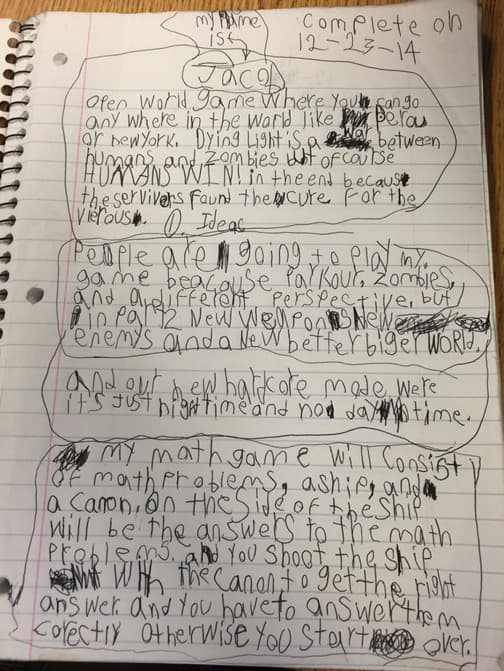 my name
is
Complete on
12-23-14
Jacol
open world game where you can go
any where in the world like Perou
or newyork. Dying Light is a between
humans and zombies but ofcourse
HUMANS WIN! in the end becaus
the servivers found the cure for the
vierous. Ideas
People are going to play my
game bearcause Parkour, zombies,
and a different perspective, but
in part 2 New weapons New
enemys and a New better biger world.
and our new hardcore mode were
it's just nightime and no daytime.
my math game will consist
of math problems, a ship, and
a canon, on the side of the ship
will be the answers to the math
problems, and you shoot the ship
with the canon to get the right
answer and you have to answer them
corectly otherwise you start over.